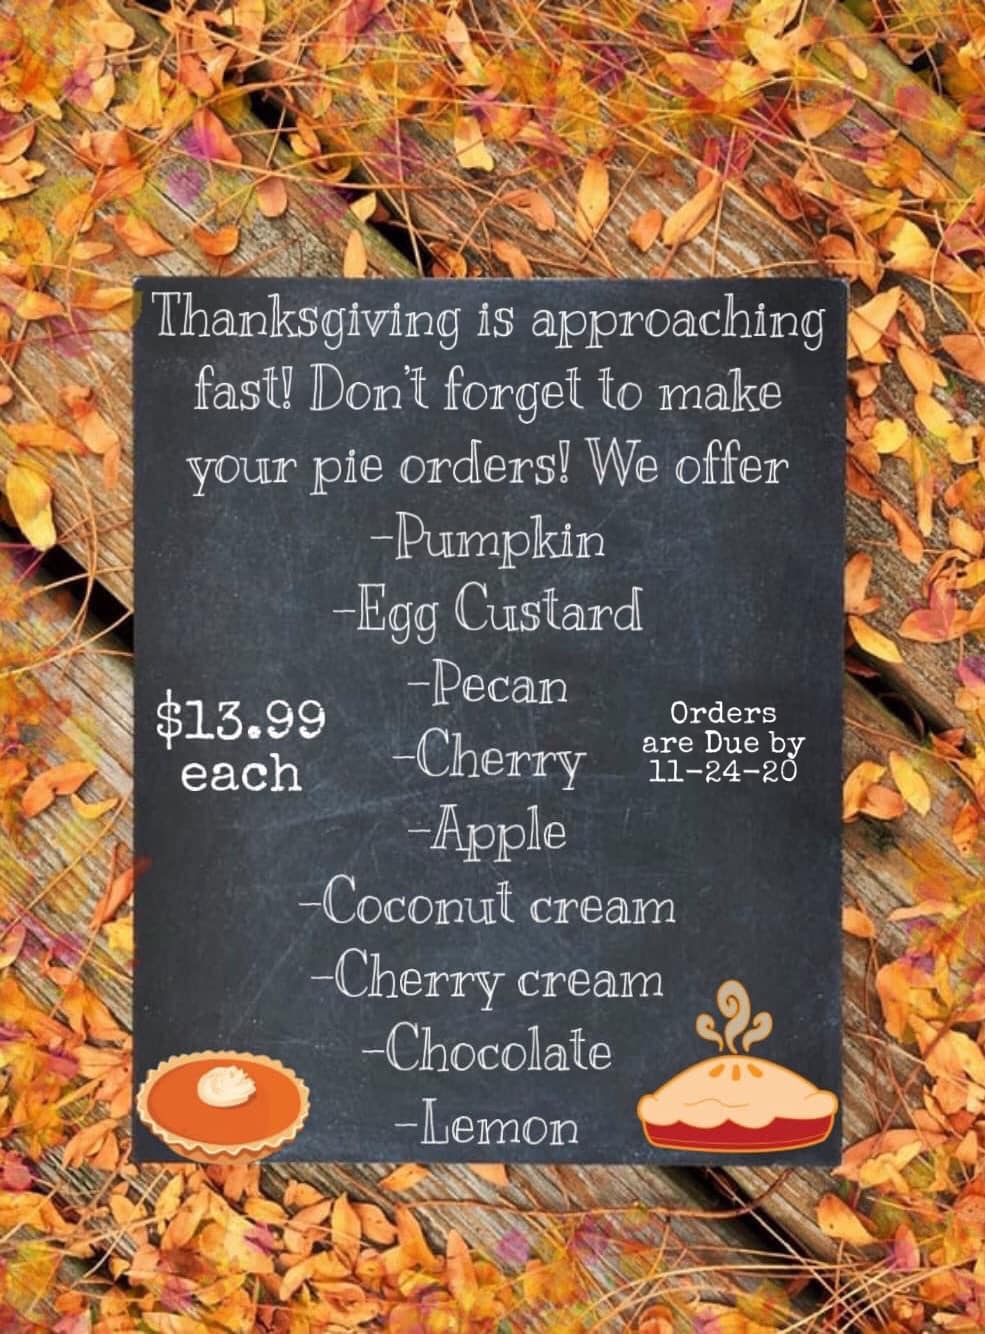 Thanksgiving is approaching
fast! Don't forget to make
your pie orders! We offer
-Pumpkin
-Egg Custard
-Pecan
-Cherry
-Apple
-Coconut cream
-Cherry cream
-Chocolate
-Lemon
$13.99
each
Orders
are Due by
11-24-20